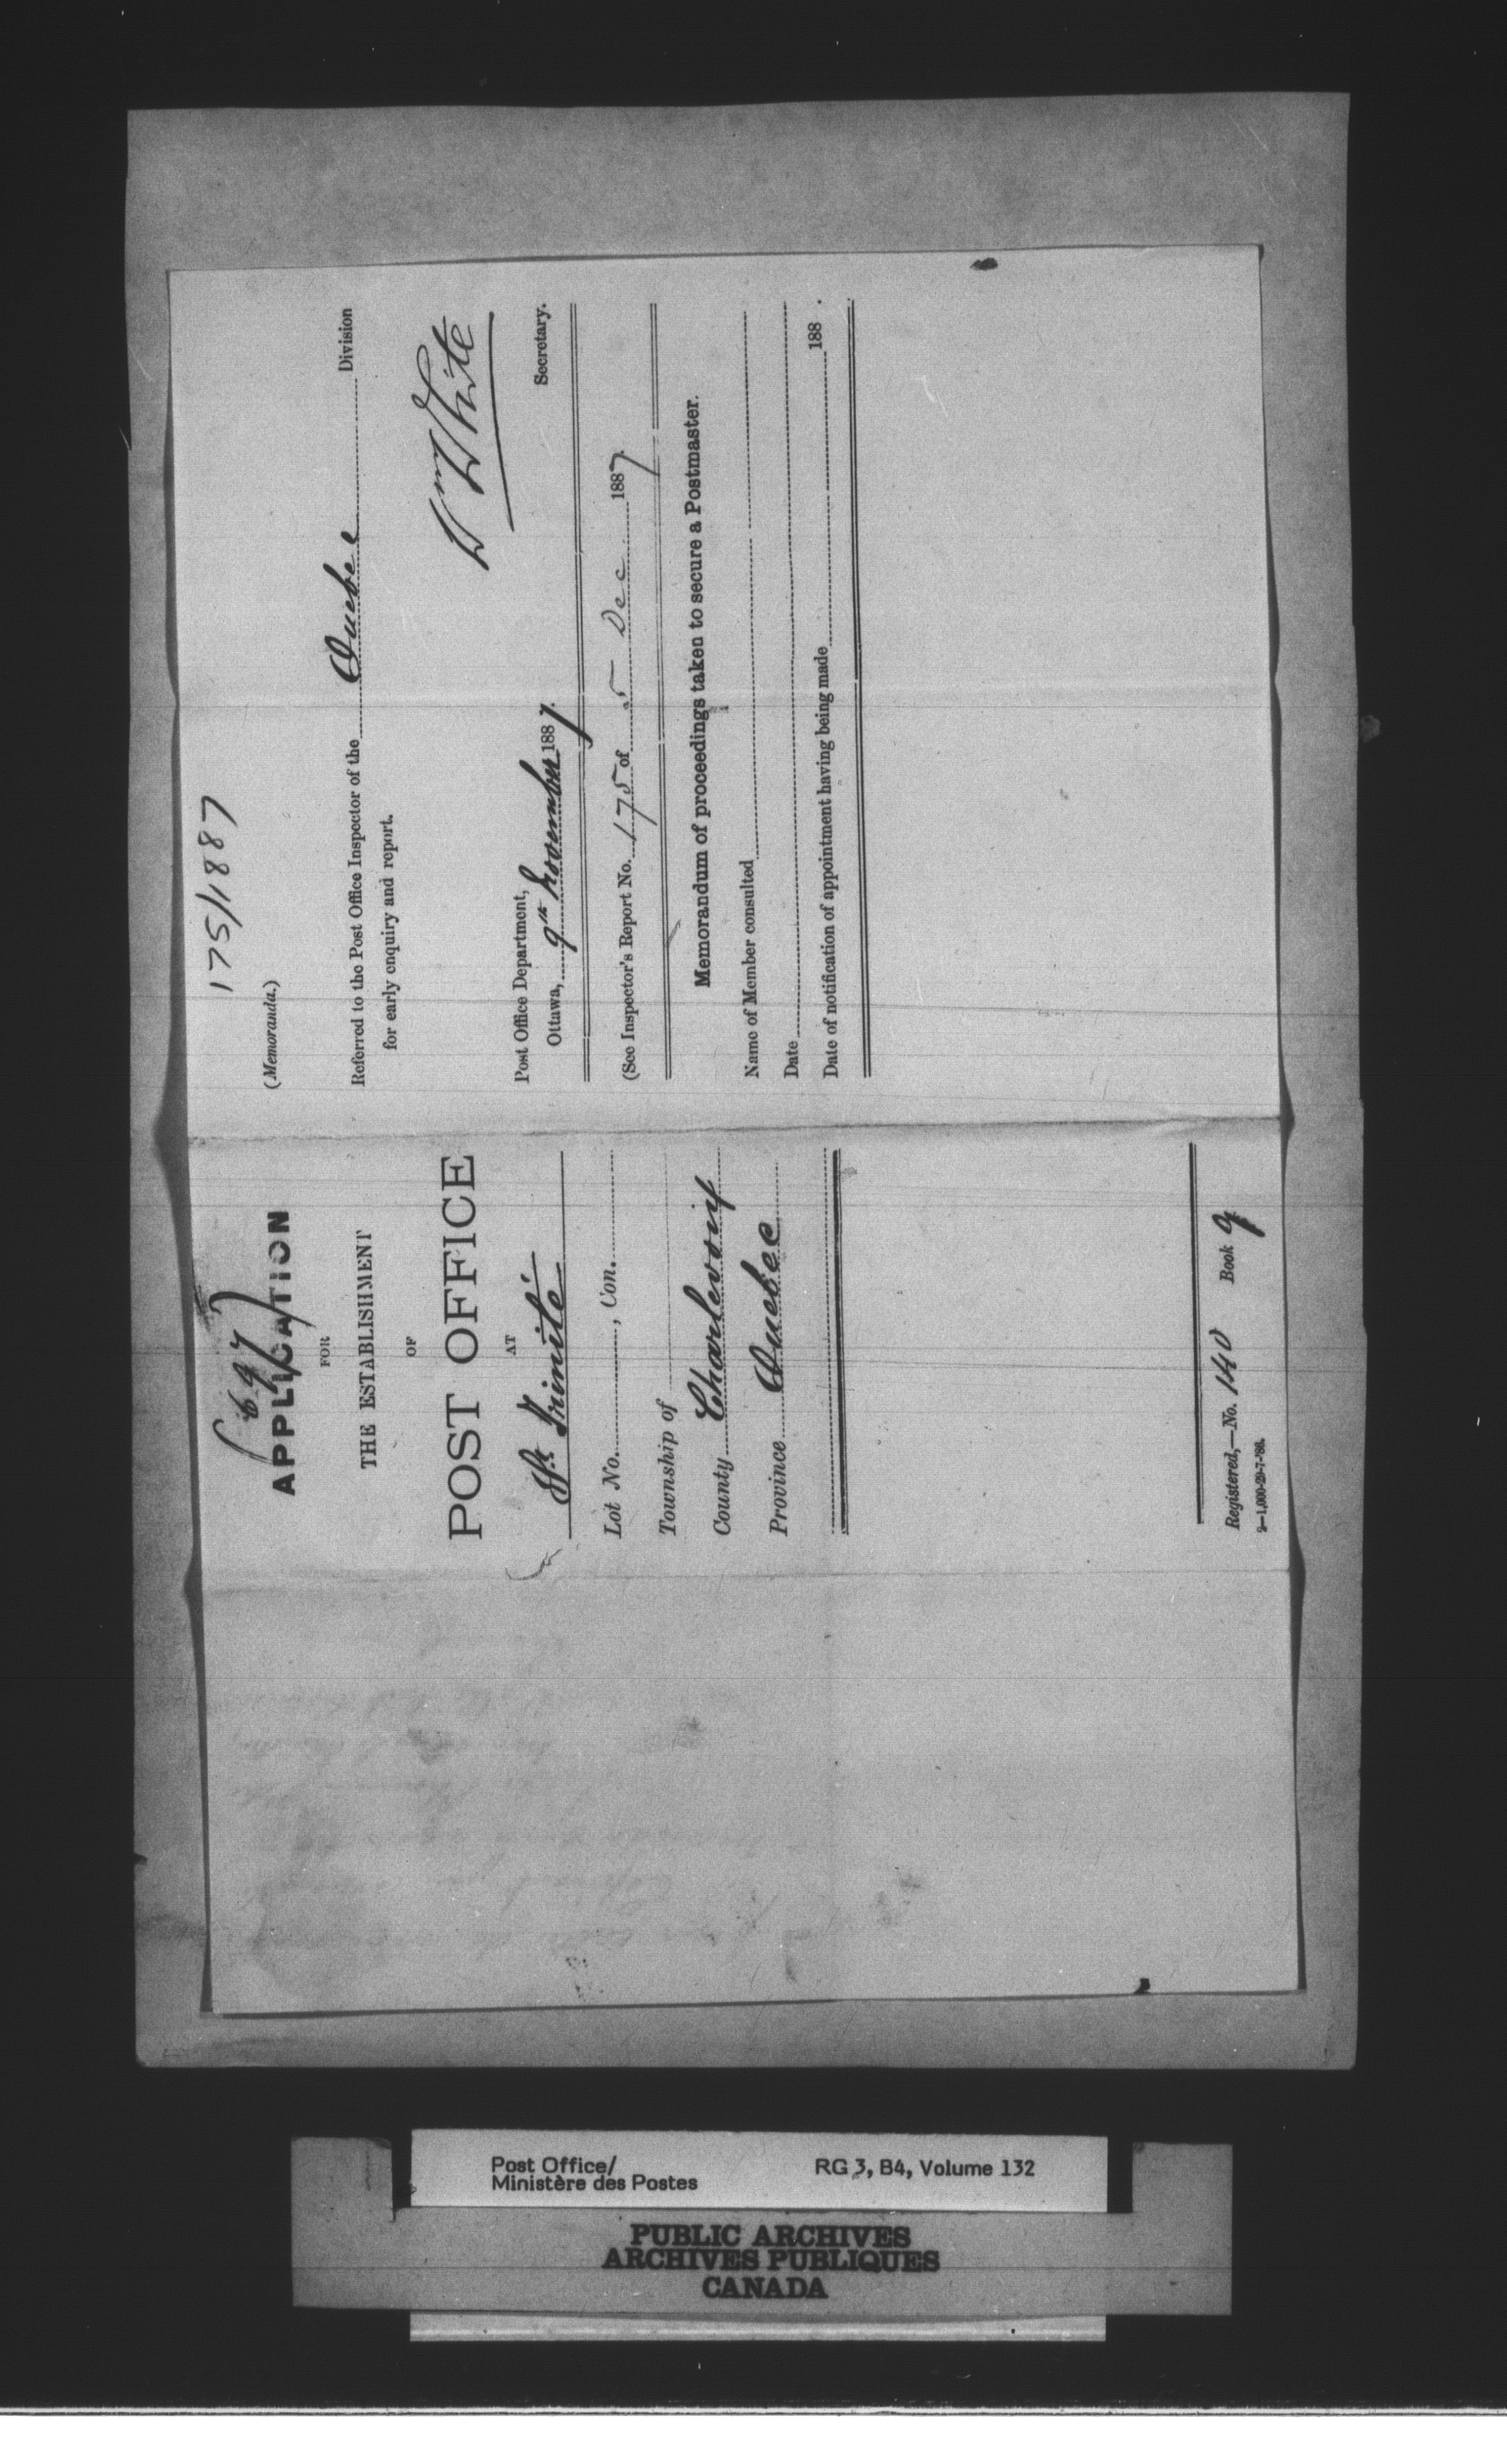 (697)
APPLICATION
FOR
THE ESTABLISHMENT
OF
POST OFFICE
AT
Ste Trinité
Lot No. , Con.
Township of
County Charlevoix
Province Quebec
Registered,—No. 140 Book 9
2—1,000-29-7-'86.
175/1887
(Memoranda.)
Referred to the Post Office Inspector of the Quebec Division
for early enquiry and report.
Wm White
Secretary.
Post Office Department,
Ottawa, 9th November 1887.
(See Inspector's Report No. 175 of 5 Dec 1887
Memorandum of proceedings taken to secure a Postmaster.
Name of Member consulted
Date
Date of notification of appointment having being made 188 .
Post Office/ RG 3, B4, Volume 132
Ministère des Postes
PUBLIC ARCHIVES
ARCHIVES PUBLIQUES
CANADA